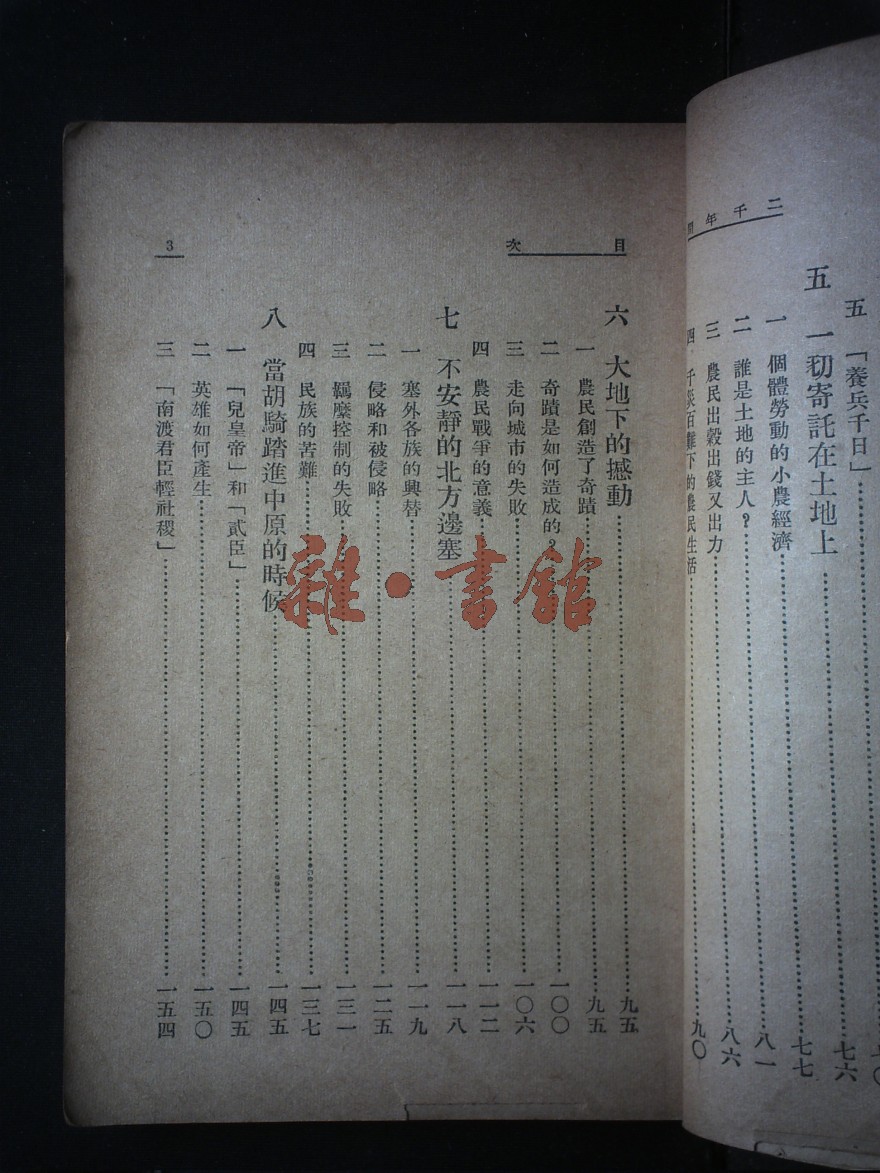 二千年
五 「養兵千日」……〇
五 一切寄託在土地上……七六
一 個體勞動的小農經濟……七七
二 誰是土地的主人？……八一
三 農民出穀出錢又出力……八六
四 千災百難下的農民生活……九〇
目次
六 大地下的撼動……九五
一 農民創造了奇蹟……九五
二 奇蹟是如何造成的？……一〇〇
三 走向城市的失敗……一〇六
四 農民戰爭的意義……一一二
七 不安靜的北方邊塞……一一八
一 塞外各族的興替……一一九
二 侵略和被侵略……一二五
三 羈縻控制的失敗……一三一
四 民族的苦難……一三七
八 當胡騎踏進中原的時候……一四五
一 「兒皇帝」和「貳臣」……一四五
二 英雄如何產生……一五〇
三 「南渡君臣輕社稷」……一五四
3
雜·書館